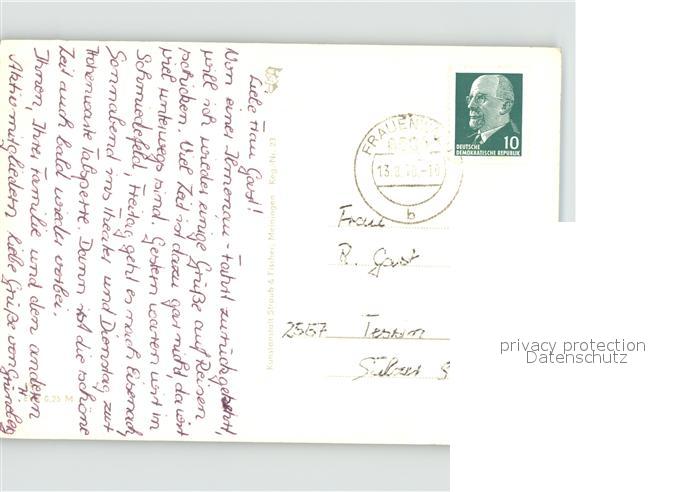 Liebe Frau Gast!
Von einer Ilmenau-Fahrt zurückgekehrt,
will ich wieder einige Grüße auf Reisen
schicken. Viel Zeit ist dazu gar nicht, da wir
viel unterwegs sind. Gestern waren wir in
Schmiedefeld, Freitag geht es nach Eisenach,
Sonnabend ins Theater und Dienstag zur
Hohenwarte Talsperre. Dann ist die schöne
Zeit auch bald wieder vorbei.
Ihnen, Ihrer Familie und den anderen
Aktivmitgliedern liebe Grüße von
H. Gründleg
0,25 M
Kunstanstalt Straub & Fischer, Meiningen Reg.-Nr. 23
FRAUENW
13.8.70-10
b
10
DEUTSCHE
DEMOKRATISCHE REPUBLIK
Frau
R. Gast
2557 Tessin
Sülzer
privacy protection
Datenschutz